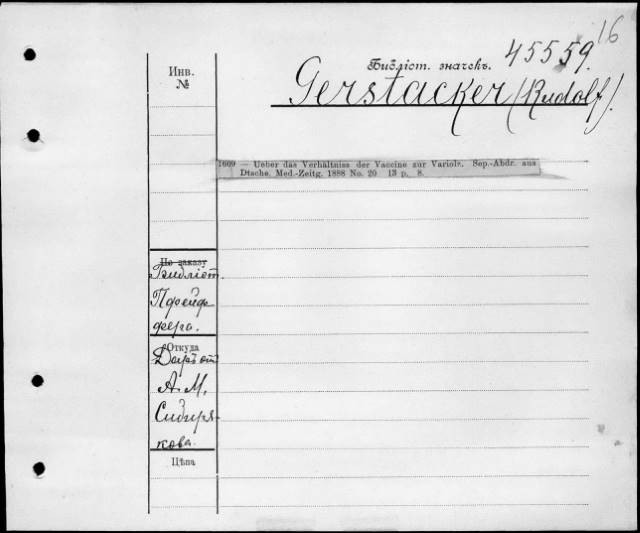 16
Библіот. значекъ. 45559.
Gerstacker (Rudolf).
Инв.
№
1609 — Ueber das Verhältniss der Vaccine zur Variola. Sep.-Abdr. aus
Dtsche. Med.-Zeitg. 1888 No. 20 13 p. 8.
По заказу
Библіот.
Пфейф
фера.
Откуда
Даръ от
А. М.
Сибиря-
кова.
Цѣна